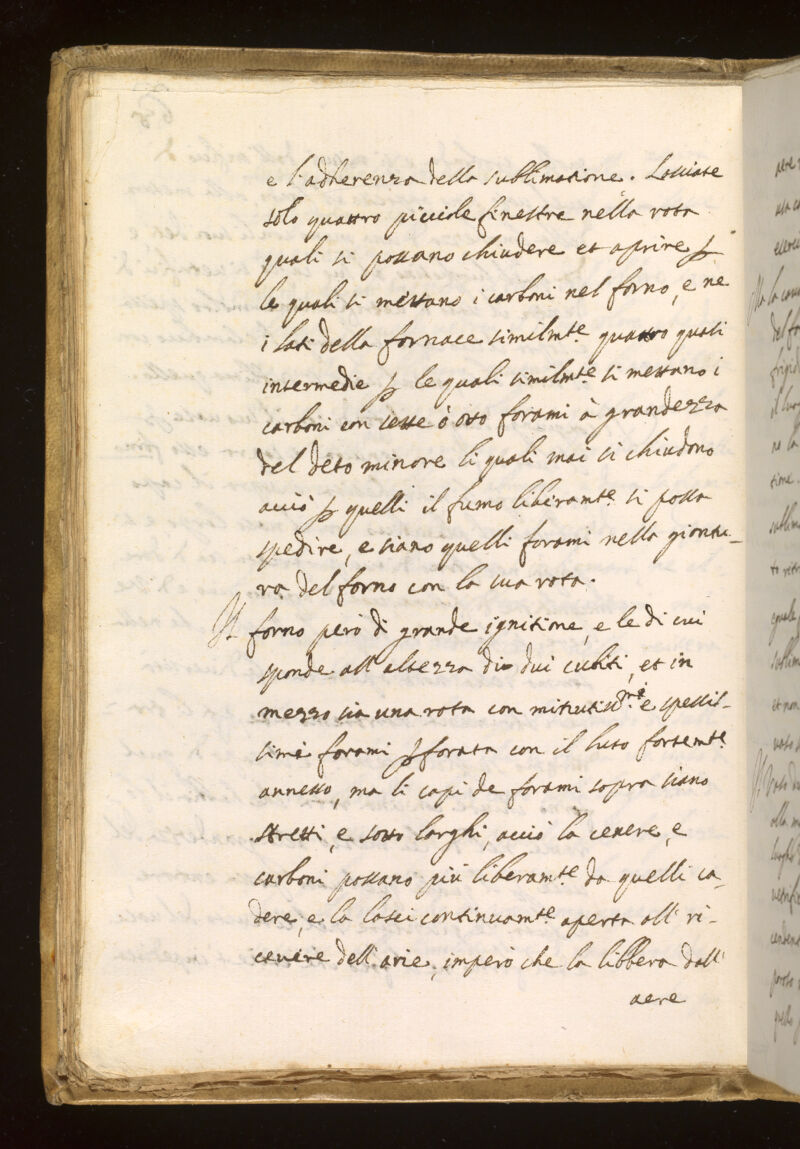 e l'adherenza della sublimatione. Lasciate
solo quattro picciole finestre nella rota
quali si possano chiudere et aprire ꝑ
le quali si mettano i carboni nel forno, e ne
i lati della fornace similmte quattro quali
intermedie ꝑ le quali similmte si mettano i
carboni con sesse ò otto forami à grandezza
del deto minore li quali mai si chiudono
acciò ꝑ quelli il fumo liberamte si possa
spedire, e siano quelli forami nella giontu-
ra del forno con la sua rota.
Il forno però di grande ignitione, e le di cui
sponde all'altezza di dui cubiti, et in
mezzo sia una rota con minutissmi e spessis-
simi forami ꝑforata con il luto fortemte
annesso, ma li capi de forami sopra siano
stretti, e sotto larghi, acciò la cenere, e
carboni possano più liberamte da quelli ca-
dere, e la lasci continuamte aperta all ri-
cevere dell'arie, imperò che la libbera dall'
aere